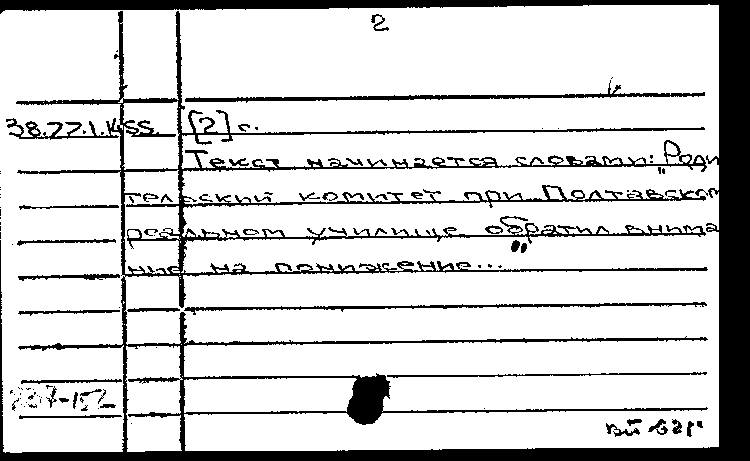 2
38.77.1.К55 [2] с.
Текст начинается словами: „Роди
тельский комитет при Полтавском
реальном училище обратил внима
ние на понижение..."
237-152